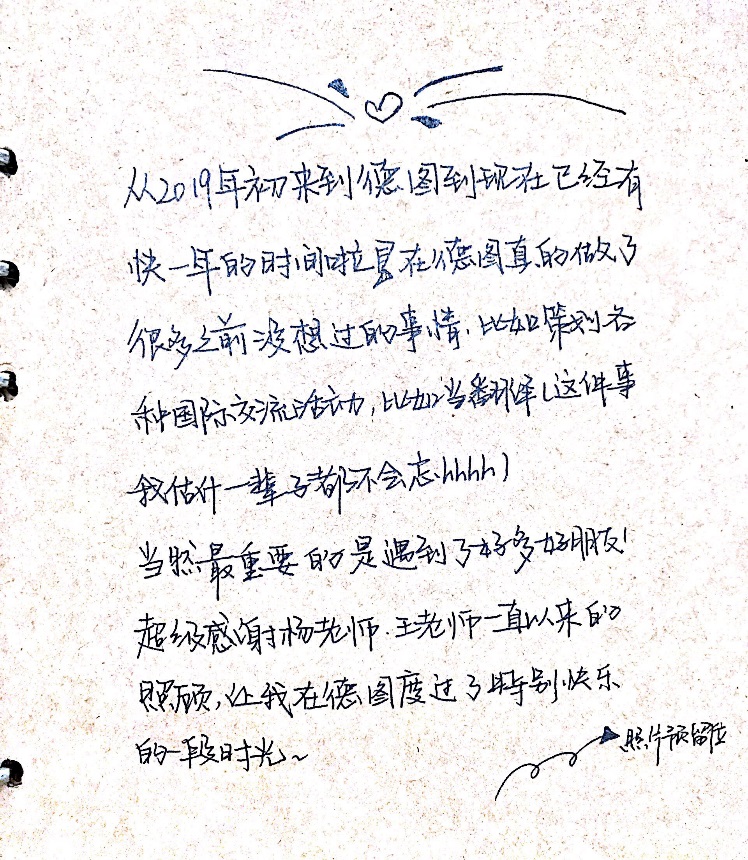 从2019年初来到德图到现在已经有
快一年的时间啦 在德图真的做了
很多之前没想过的事情，比如策划各
种国际交流活动，比如当翻译（这件事
我估计一辈子都不会忘hhhh）
当然最重要的是遇到了好多好朋友！
超级感谢杨老师、王老师一直以来的
照顾，让我在德图度过了特别快乐
的一段时光~
照片预留位